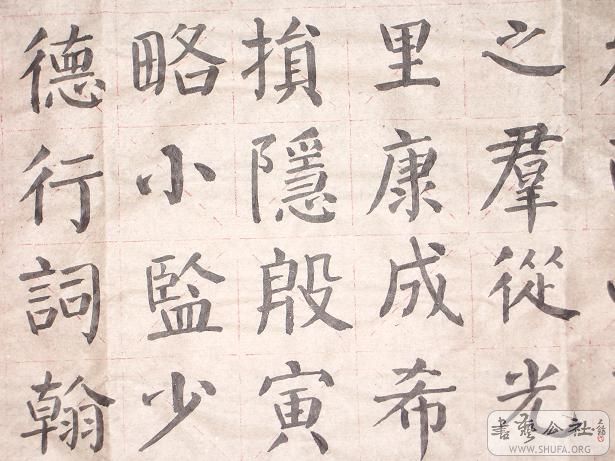 之羣從光
里康成希
損隱殷寅
略小監少
德行詞翰
書藝公社
WWW.SHUFA.ORG